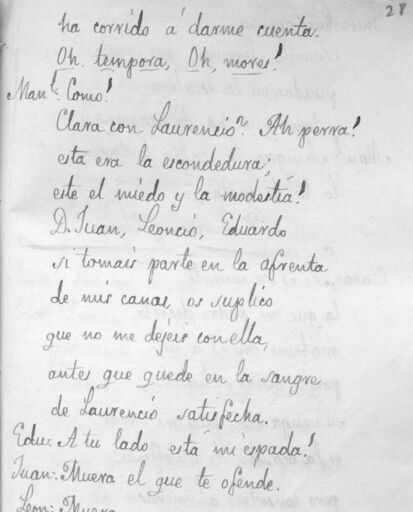 28
ha corrido á darme cuenta.
Oh, tempora, Oh, mores!
Manl: Como!
Clara con Laurencio? Ah perra!
esta era la escondedura;
este el miedo y la modestia!
D. Juan, Leoncio, Eduardo
si tomais parte en la afrenta
de mis canas, os suplico
que no me dejeis con ella,
antes que quede en la sangre
de Laurencio satisfecha.
Edu: A tu lado está mi espada!
Juan: Muera el que te ofende.
Leon: Muera